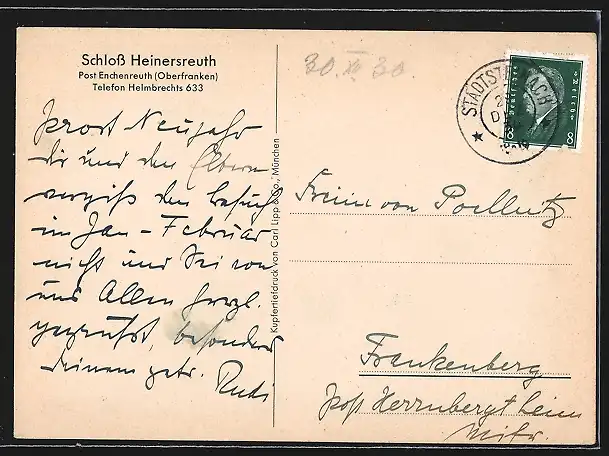 Schloß Heinersreuth
Post Enchenreuth (Oberfranken)
Telefon Helmbrechts 633
30. XII 30.
STADTSTEINACH
Deutsches Reich
8 8
Prost Neujahr
dir und den Eltern
vergiß den Besuch
im Jan – Februar
nicht und Sei von
uns Allen herzl.
gegrüßt, besonders
Deinem getr. Rudi
Kupfertiefdruck von Carl Lipp & Co., München
Freiin von Poellnitz
Frankenberg
Post Herrnbergtheim
Mifr.